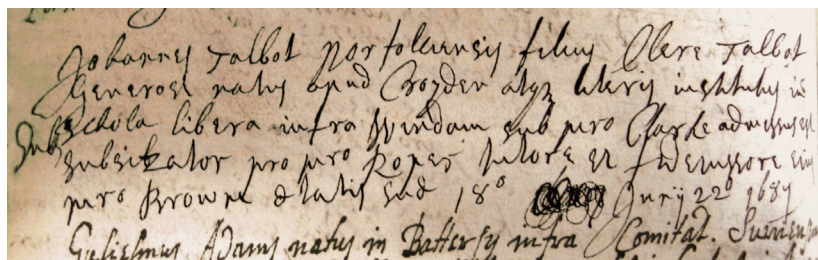 Johannes Talbot Norfolciensis filius Clere Talbot
Generosi natus apud Croyden atq literis institutus in
Schola libera infra Windam sub mro Clarke admissus est
Sub
subsizator pro mro Roper tutore et fidejussore eius
mro Browne Ætatis suæ 18° Junij 22° 1689
Gulielmus Adams natus in Battersy infra Comitat.